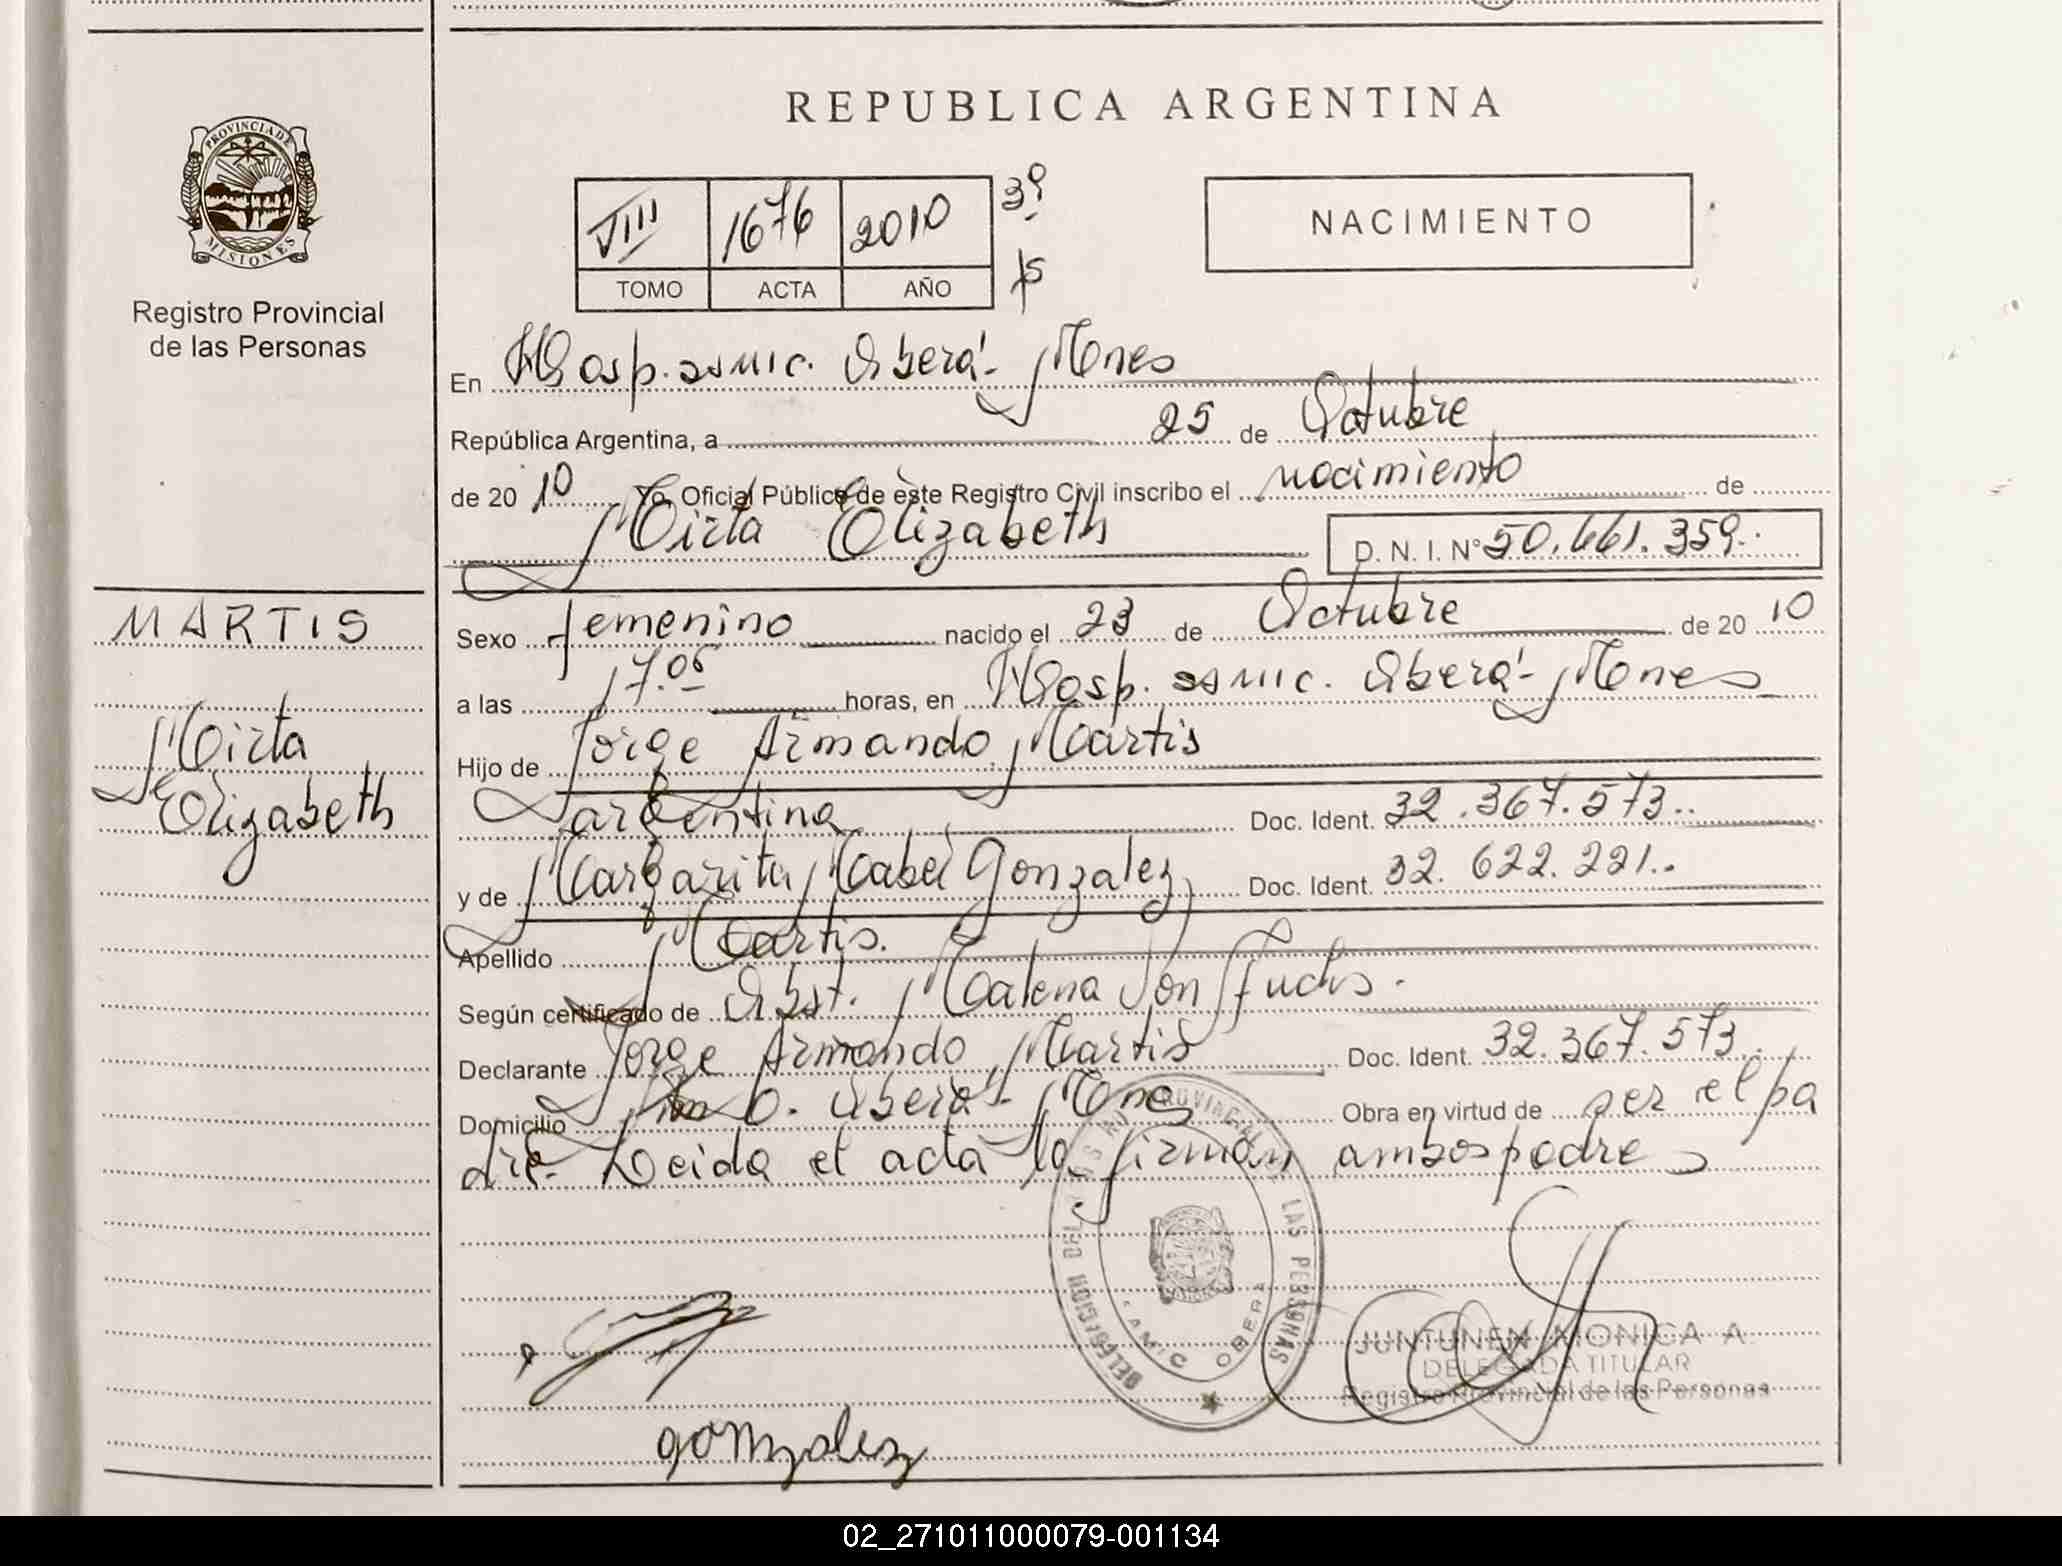 REPUBLICA ARGENTINA
PROVINCIA DE MISIONES
Registro Provincial
de las Personas
VIII 1676 2010 3º
TOMO ACTA AÑO
NACIMIENTO
En Hosp. SAMIC. Oberá - Mnes
República Argentina, a 25 de Octubre
de 20 10 Yo, Oficial Público de este Registro Civil inscribo el nacimiento de
Mirta Elizabeth D. N. I. Nº 50.661.359
MARTIS
Mirta
Elizabeth
Sexo femenino nacido el 23 de Octubre de 20 10
a las 17.05 horas, en Hosp. SAMIC. Oberá - Mnes
Hijo de Jorge Armando Martis
argentina Doc. Ident. 32.367.573
y de Margarita Mabel Gonzalez Doc. Ident. 32.622.221
Apellido Martis.
Según certificado de Obst. Malena Von ffuchs.
Declarante Jorge Armando Martis Doc. Ident. 32.367.573
Domicilio Oberá - Mnes Obra en virtud de ser el pa
dre. Leida el acta la firman ambos padres
DELEGACION DEL REGISTRO PROVINCIAL DE LAS PERSONAS
SAMIC OBERA
JUNTUNEN MONICA A
DELEGADA TITULAR
Registro Provincial de las Personas
gonzalez
02_271011000079-001134